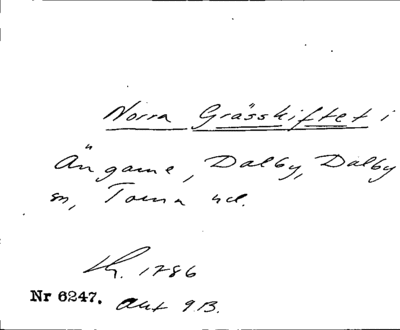 Norra Grässkiftet i
Ängarne, Dalby, Dalby
sn, Torna hd.
Lh. 1786
Nr 6247. Akt 9B.